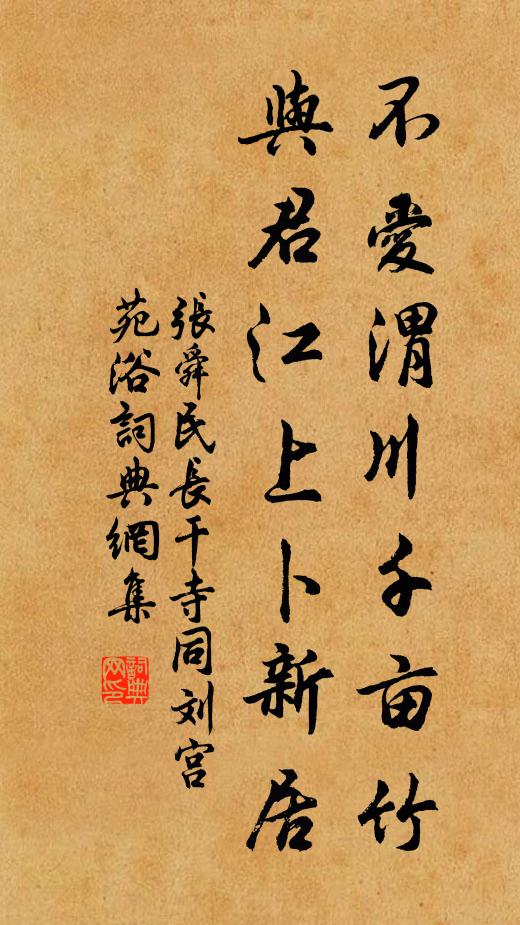 不愛渭川千亩竹
與君江上卜新居
張舜民長干寺同刘宫
苑浴詞典網集
詞典網印